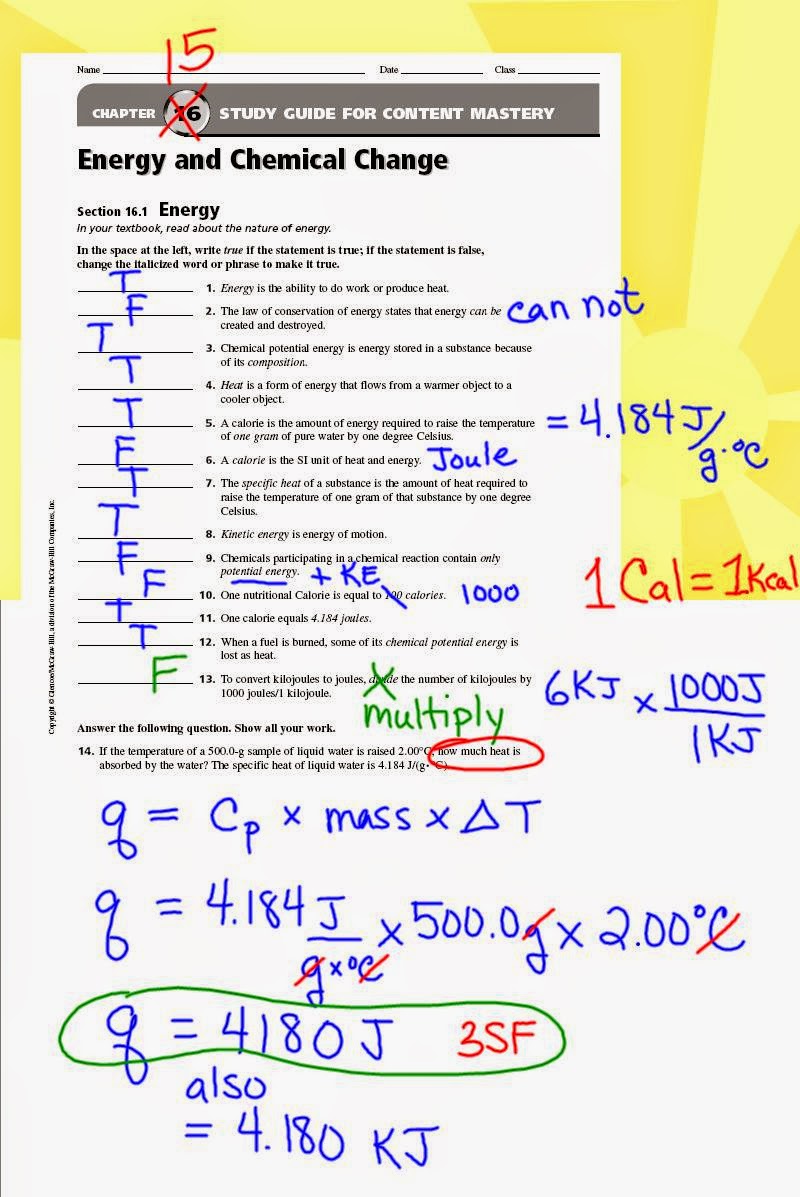 15
Name Date Class
CHAPTER 16 STUDY GUIDE FOR CONTENT MASTERY
Energy and Chemical Change
Section 16.1 Energy
In your textbook, read about the nature of energy.
In the space at the left, write true if the statement is true; if the statement is false,
change the italicized word or phrase to make it true.
T 1. Energy is the ability to do work or produce heat.
F 2. The law of conservation of energy states that energy can be can not
created and destroyed.
T 3. Chemical potential energy is energy stored in a substance because
of its composition.
T 4. Heat is a form of energy that flows from a warmer object to a
cooler object.
T 5. A calorie is the amount of energy required to raise the temperature = 4.184 J/
of one gram of pure water by one degree Celsius. g·°C
F 6. A calorie is the SI unit of heat and energy. Joule
T 7. The specific heat of a substance is the amount of heat required to
raise the temperature of one gram of that substance by one degree
Celsius.
T 8. Kinetic energy is energy of motion.
F 9. Chemicals participating in a chemical reaction contain only
potential energy. + KE
F 10. One nutritional Calorie is equal to 100 calories. 1000
1 Cal = 1 Kcal
T 11. One calorie equals 4.184 joules.
T 12. When a fuel is burned, some of its chemical potential energy is
lost as heat.
F 13. To convert kilojoules to joules, divide the number of kilojoules by
1000 joules/1 kilojoule.
X
multiply
6 KJ x 1000J
1 KJ
Copyright © Glencoe/McGraw-Hill, a division of the McGraw-Hill Companies, Inc.
Answer the following question. Show all your work.
14. If the temperature of a 500.0-g sample of liquid water is raised 2.00°C, how much heat is
absorbed by the water? The specific heat of liquid water is 4.184 J/(g·°C).
q = Cp x mass x ΔT
q = 4.184 J x 500.0g x 2.00°C
g x °C
q = 4180 J 3SF
also
= 4.180 KJ